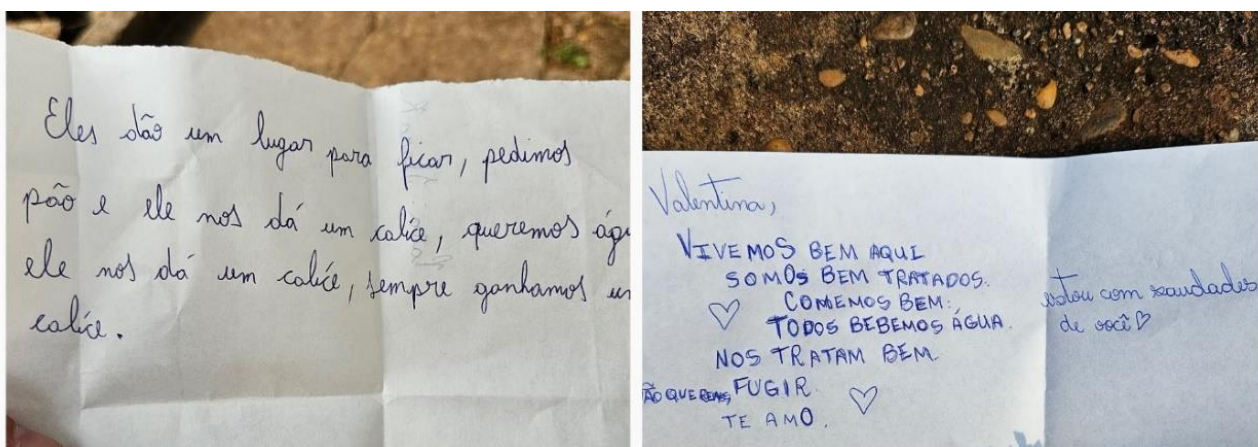 Eles dão um lugar para ficar, pedimos
pão e ele nos dá um calíce, queremos águ
ele nos dá um calíce, sempre ganhamos um
calíce.
Valentina,
VIVEMOS BEM AQUI
SOMOS BEM TRATADOS.
COMEMOS BEM.
TODOS BEBEMOS ÁGUA.
NOS TRATAM BEM.
ÃO QUEREMOS FUGIR.
TE AMO.
estou com saudades
de você♡